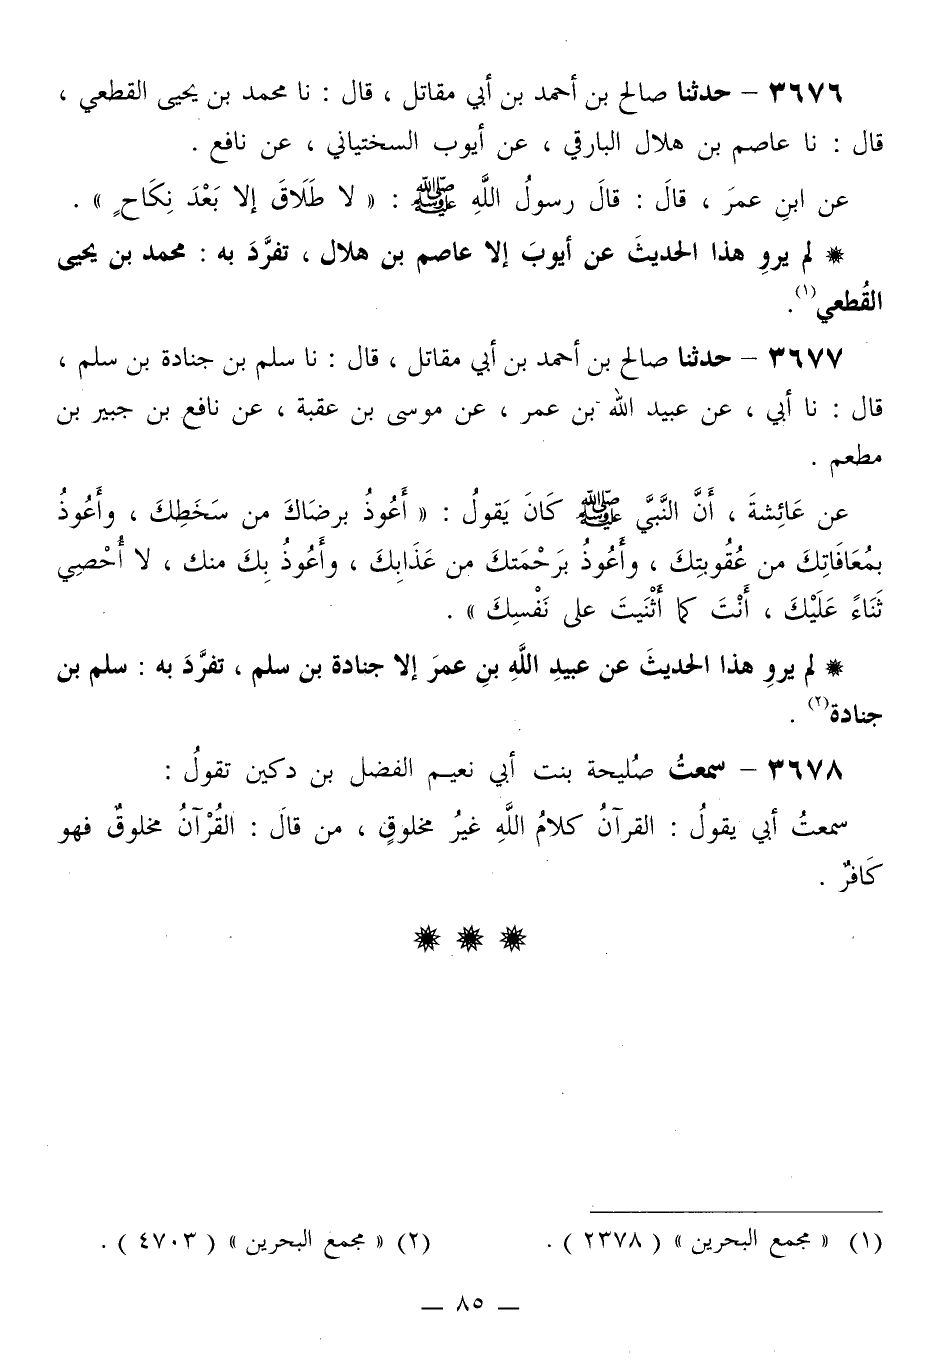 ٣٦٧٦ – حدثنا صالح بن أحمد بن أبي مقاتل ، قال : نا محمد بن يحيى القطعي ،
قال : نا عاصم بن هلال البارقي ، عن أيوب السختياني ، عن نافع .
عن ابنِ عمرَ ، قالَ : قالَ رسولُ اللَّهِ ﷺ : « لا طَلَاقَ إلا بَعْدَ نِكَاحٍ » .
* لم يروِ هذا الحديثَ عن أيوبَ إلا عاصم بن هلال ، تفرَّدَ به : محمد بن يحيى
القُطعي(١).
٣٦٧٧ – حدثنا صالح بن أحمد بن أبي مقاتل ، قال : نا سلم بن جنادة بن سلم ،
قال : نا أبي ، عن عبيد الله بن عمر ، عن موسى بن عقبة ، عن نافع بن جبير بن
مطعم .
عن عَائِشةَ ، أَنَّ النَّبيَّ ﷺ كَانَ يَقولُ : « أَعُوذُ برضَاكَ من سَخَطِكَ ، وأَعُوذُ
بمُعَافَاتِكَ من عُقُوبتِكَ ، وأَعُوذُ بَرَحْمَتكَ من عَذَابِكَ ، وأَعُوذُ بِكَ منك ، لا أُحْصِي
ثَنَاءً عَلَيْكَ ، أَنْتَ كما أَثْنَيتَ على نَفْسِكَ » .
* لم يروِ هذا الحديثَ عن عبيدِ اللَّهِ بنِ عمرَ إلا جنادة بن سلم ، تفرَّدَ به : سلم بن
جنادة(٢) .
٣٦٧٨ – سمعتُ صُليحة بنت أبي نعيم الفضل بن دكين تقولُ :
سمعتُ أبي يقولُ : القرآنُ كلامُ اللَّهِ غيرُ مخلوقٍ ، من قالَ : القُرْآنُ مخلوقٌ فهو
كَافرٌ .
* * *
(١) « مجمع البحرين » ( ٢٣٧٨ ) . (٢) « مجمع البحرين » ( ٤٧٠٣ ) .
— ٨٥ —